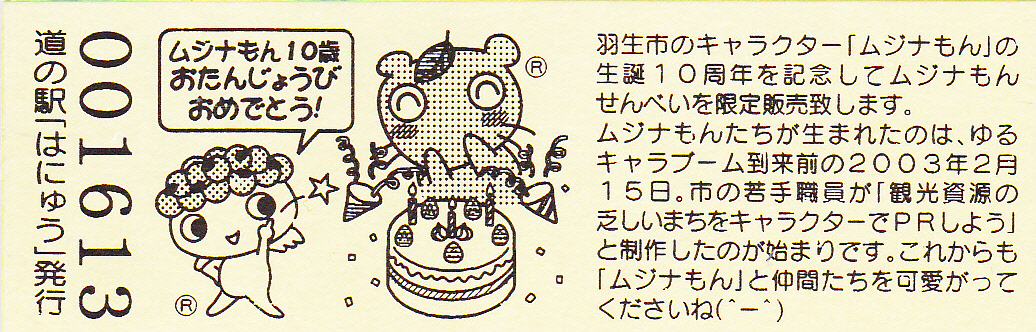 道の駅「はにゅう」発行
001613
ムジナもん10歳
おたんじょうび
おめでとう!
®
®
羽生市のキャラクター「ムジナもん」の
生誕10周年を記念してムジナもん
せんべいを限定販売致します。
ムジナもんたちが生まれたのは、ゆる
キャラブーム到来前の2003年2月
15日。市の若手職員が「観光資源の
乏しいまちをキャラクターでPRしよう」
と制作したのが始まりです。これからも
「ムジナもん」と仲間たちを可愛がって
くださいね(^-^)